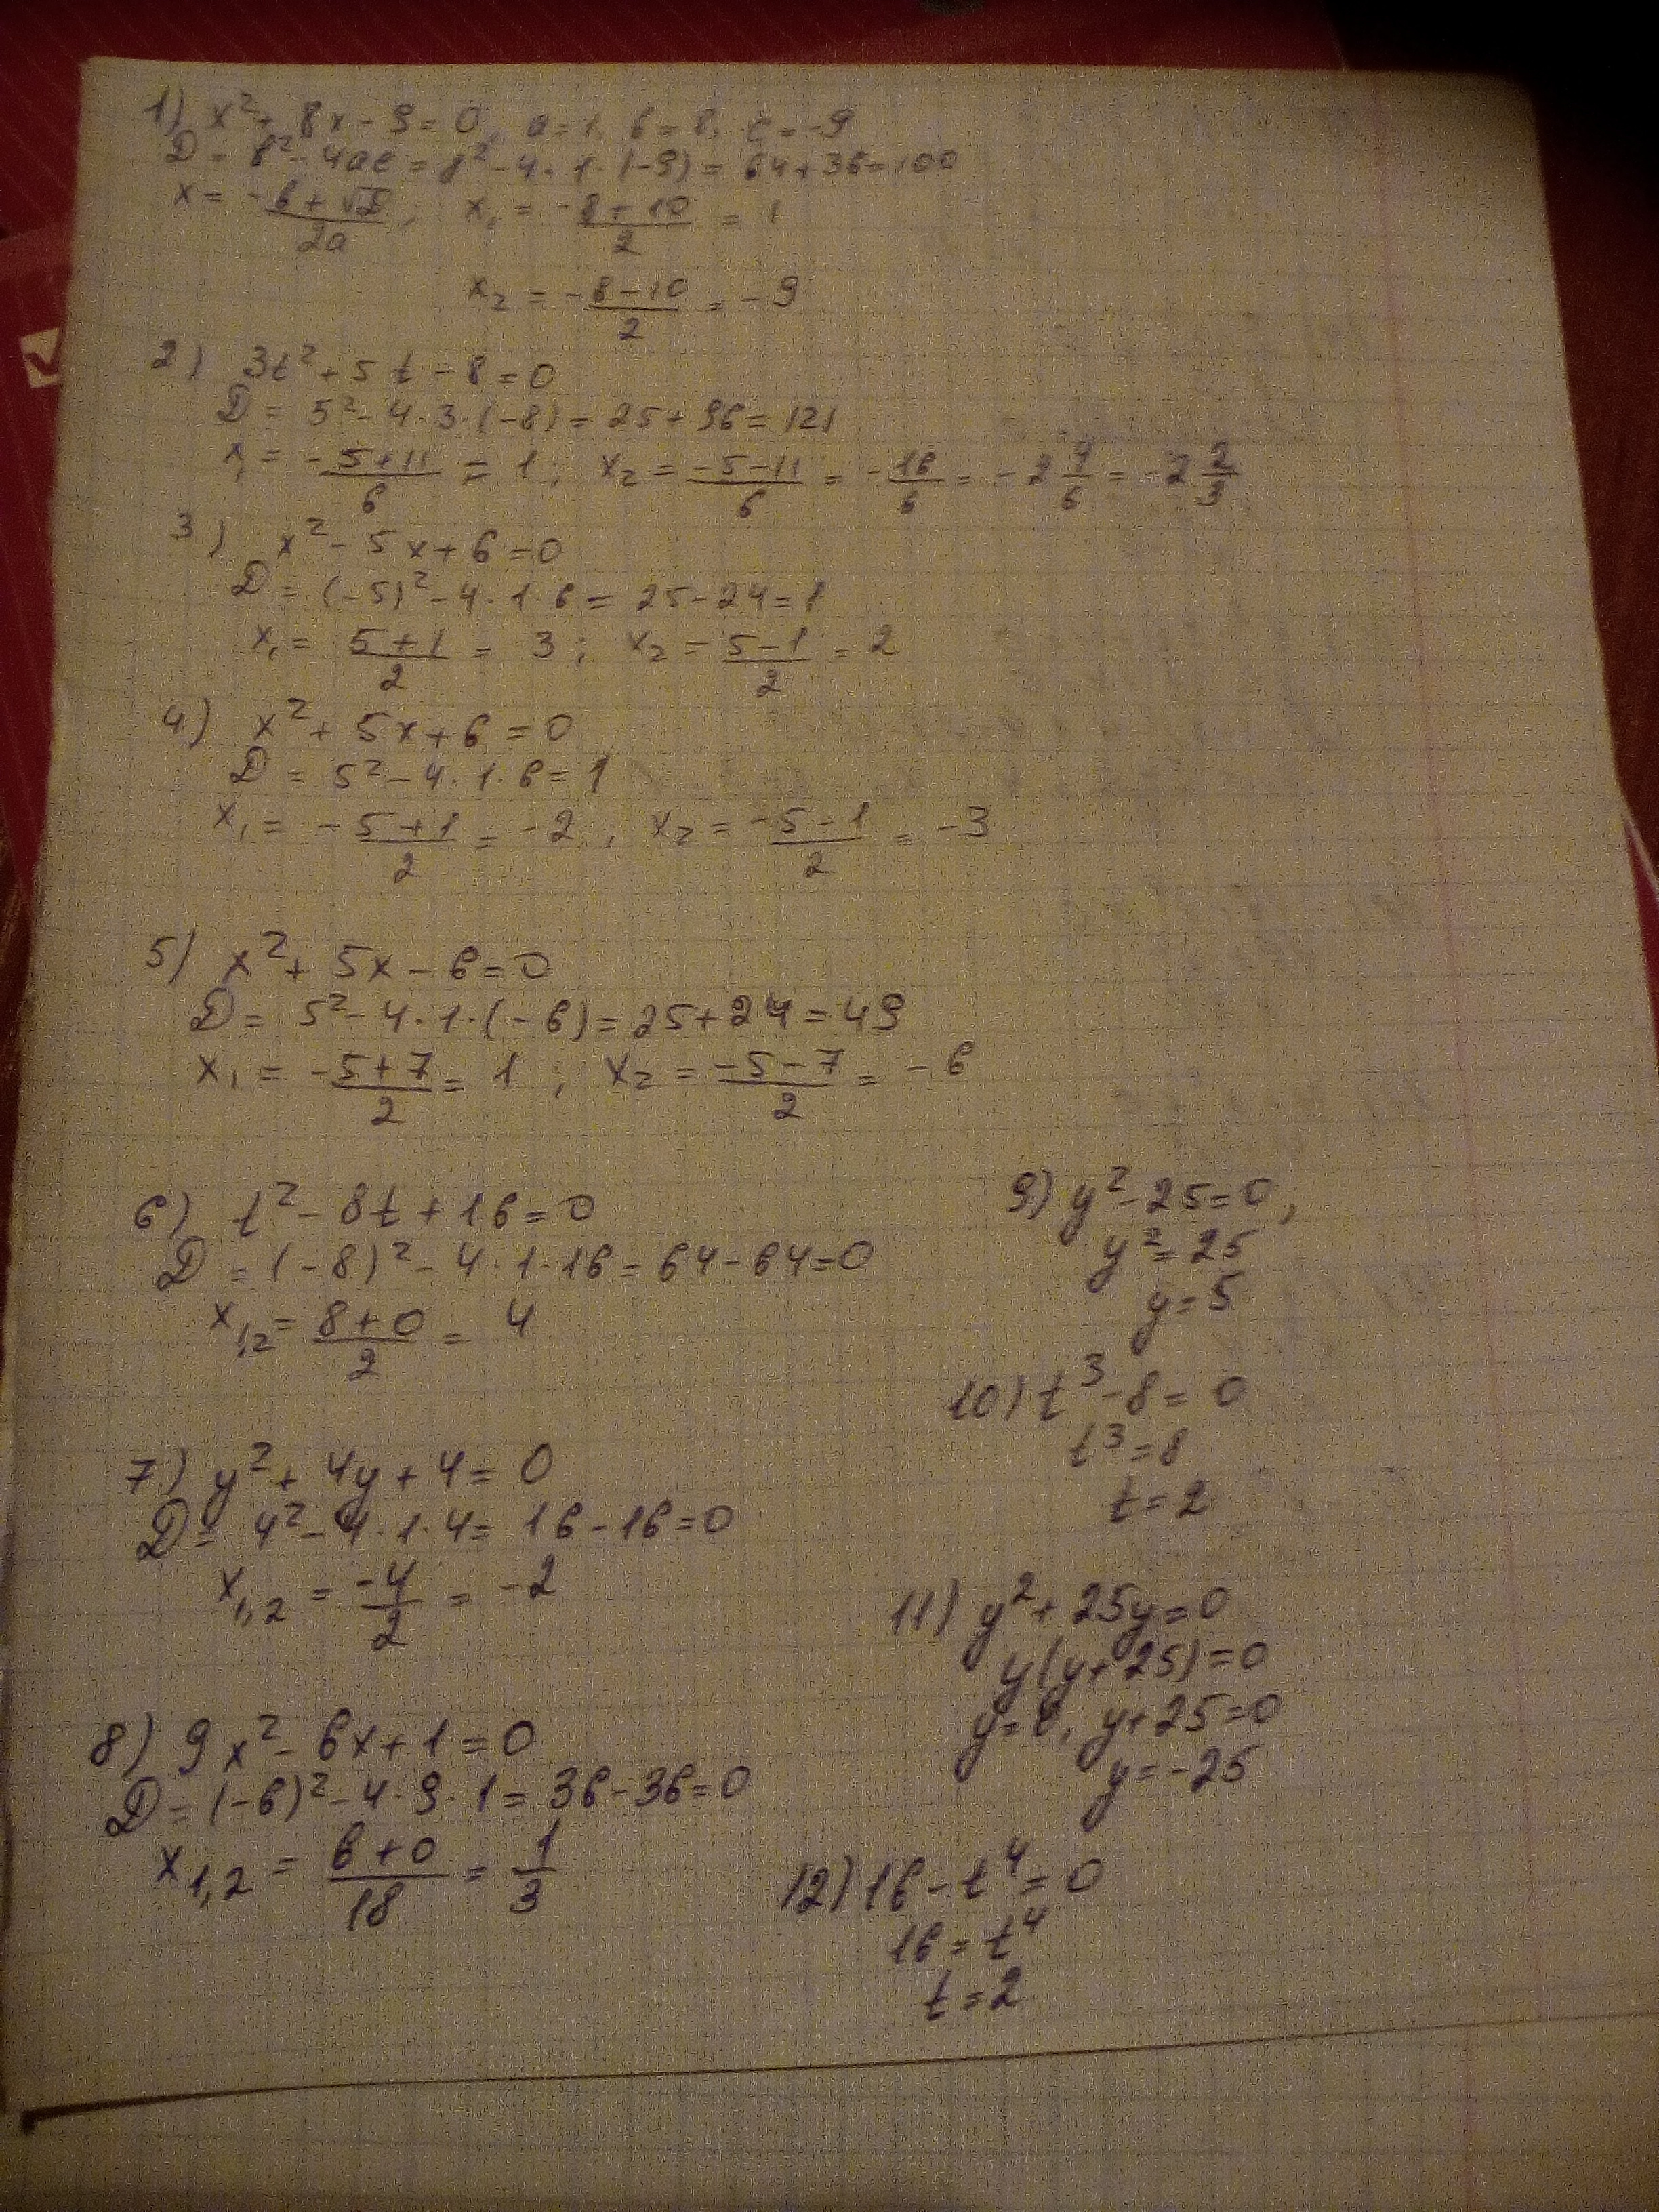 1) x² + 8x - 9 = 0, a = 1, b = 8, c = -9
D = b² - 4ac = 8² - 4 · 1 · (-9) = 64 + 36 = 100
x = (-b + √D)/2a; x₁ = (-8 + 10)/2 = 1
x₂ = (-8 - 10)/2 = -9
2) 3t² + 5t - 8 = 0
D = 5² - 4 · 3 · (-8) = 25 + 96 = 121
x₁ = (-5 + 11)/6 = 1; x₂ = (-5 - 11)/6 = -16/6 = -2 4/6 = -2 2/3
3) x² - 5x + 6 = 0
D = (-5)² - 4 · 1 · 6 = 25 - 24 = 1
x₁ = (5 + 1)/2 = 3; x₂ = (5 - 1)/2 = 2
4) x² + 5x + 6 = 0
D = 5² - 4 · 1 · 6 = 1
x₁ = (-5 + 1)/2 = -2, x₂ = (-5 - 1)/2 = -3
5) x² + 5x - 6 = 0
D = 5² - 4 · 1 · (-6) = 25 + 24 = 49
x₁ = (-5 + 7)/2 = 1; x₂ = (-5 - 7)/2 = -6
6) t² - 8t + 16 = 0
D = (-8)² - 4 · 1 · 16 = 64 - 64 = 0
x₁,₂ = (8 + 0)/2 = 4
7) y² + 4y + 4 = 0
D = 4² - 4 · 1 · 4 = 16 - 16 = 0
x₁,₂ = -4/2 = -2
8) 9x² - 6x + 1 = 0
D = (-6)² - 4 · 9 · 1 = 36 - 36 = 0
x₁,₂ = (6 + 0)/18 = 1/3
9) y² - 25 = 0,
y² = 25
y = 5
10) t³ - 8 = 0
t³ = 8
t = 2
11) y² + 25y = 0
y(y + 25) = 0
y = 0, y + 25 = 0
y = -25
12) 16 - t⁴ = 0
16 = t⁴
t = 2